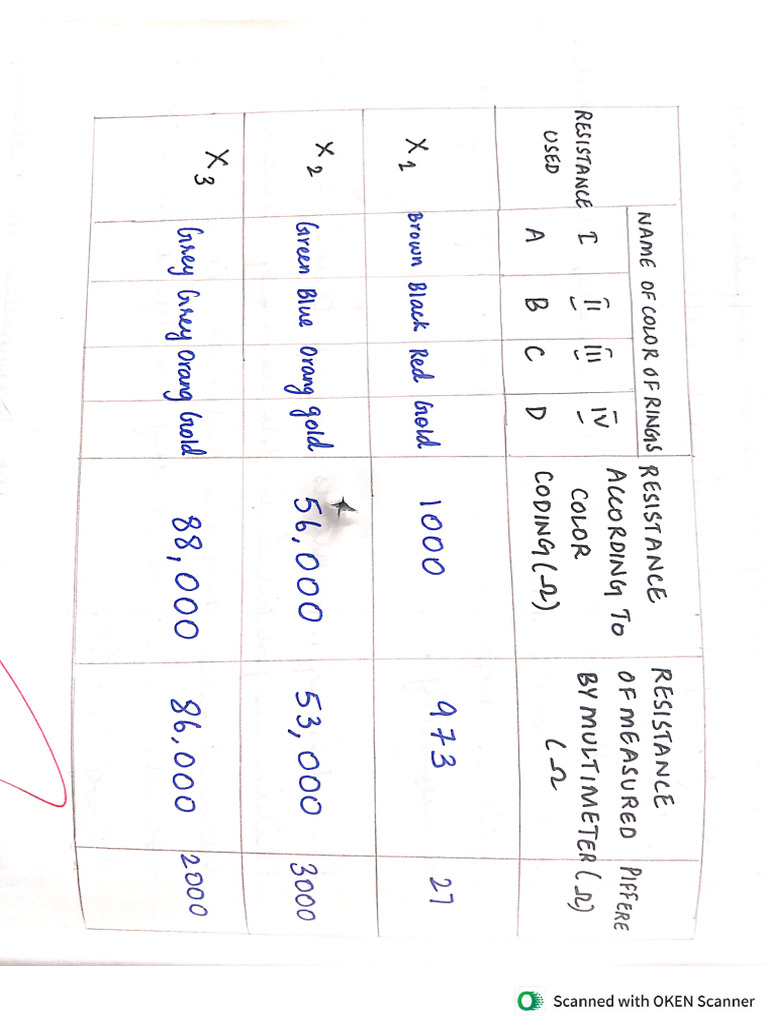 RESISTANCE USED
NAME OF COLOR OF RINGS
I II III IV
A B C D
RESISTANCE ACCORDING TO COLOR CODING (Ω)
RESISTANCE OF MEASURED BY MULTIMETER (Ω
PIFFERE (Ω)
X1 Brown Black Red Gold 1000 973 27
X2 Green Blue Orang gold 56,000 53,000 3000
X3 Grey Grey Orang Gold 88,000 86,000 2000
Scanned with OKEN Scanner